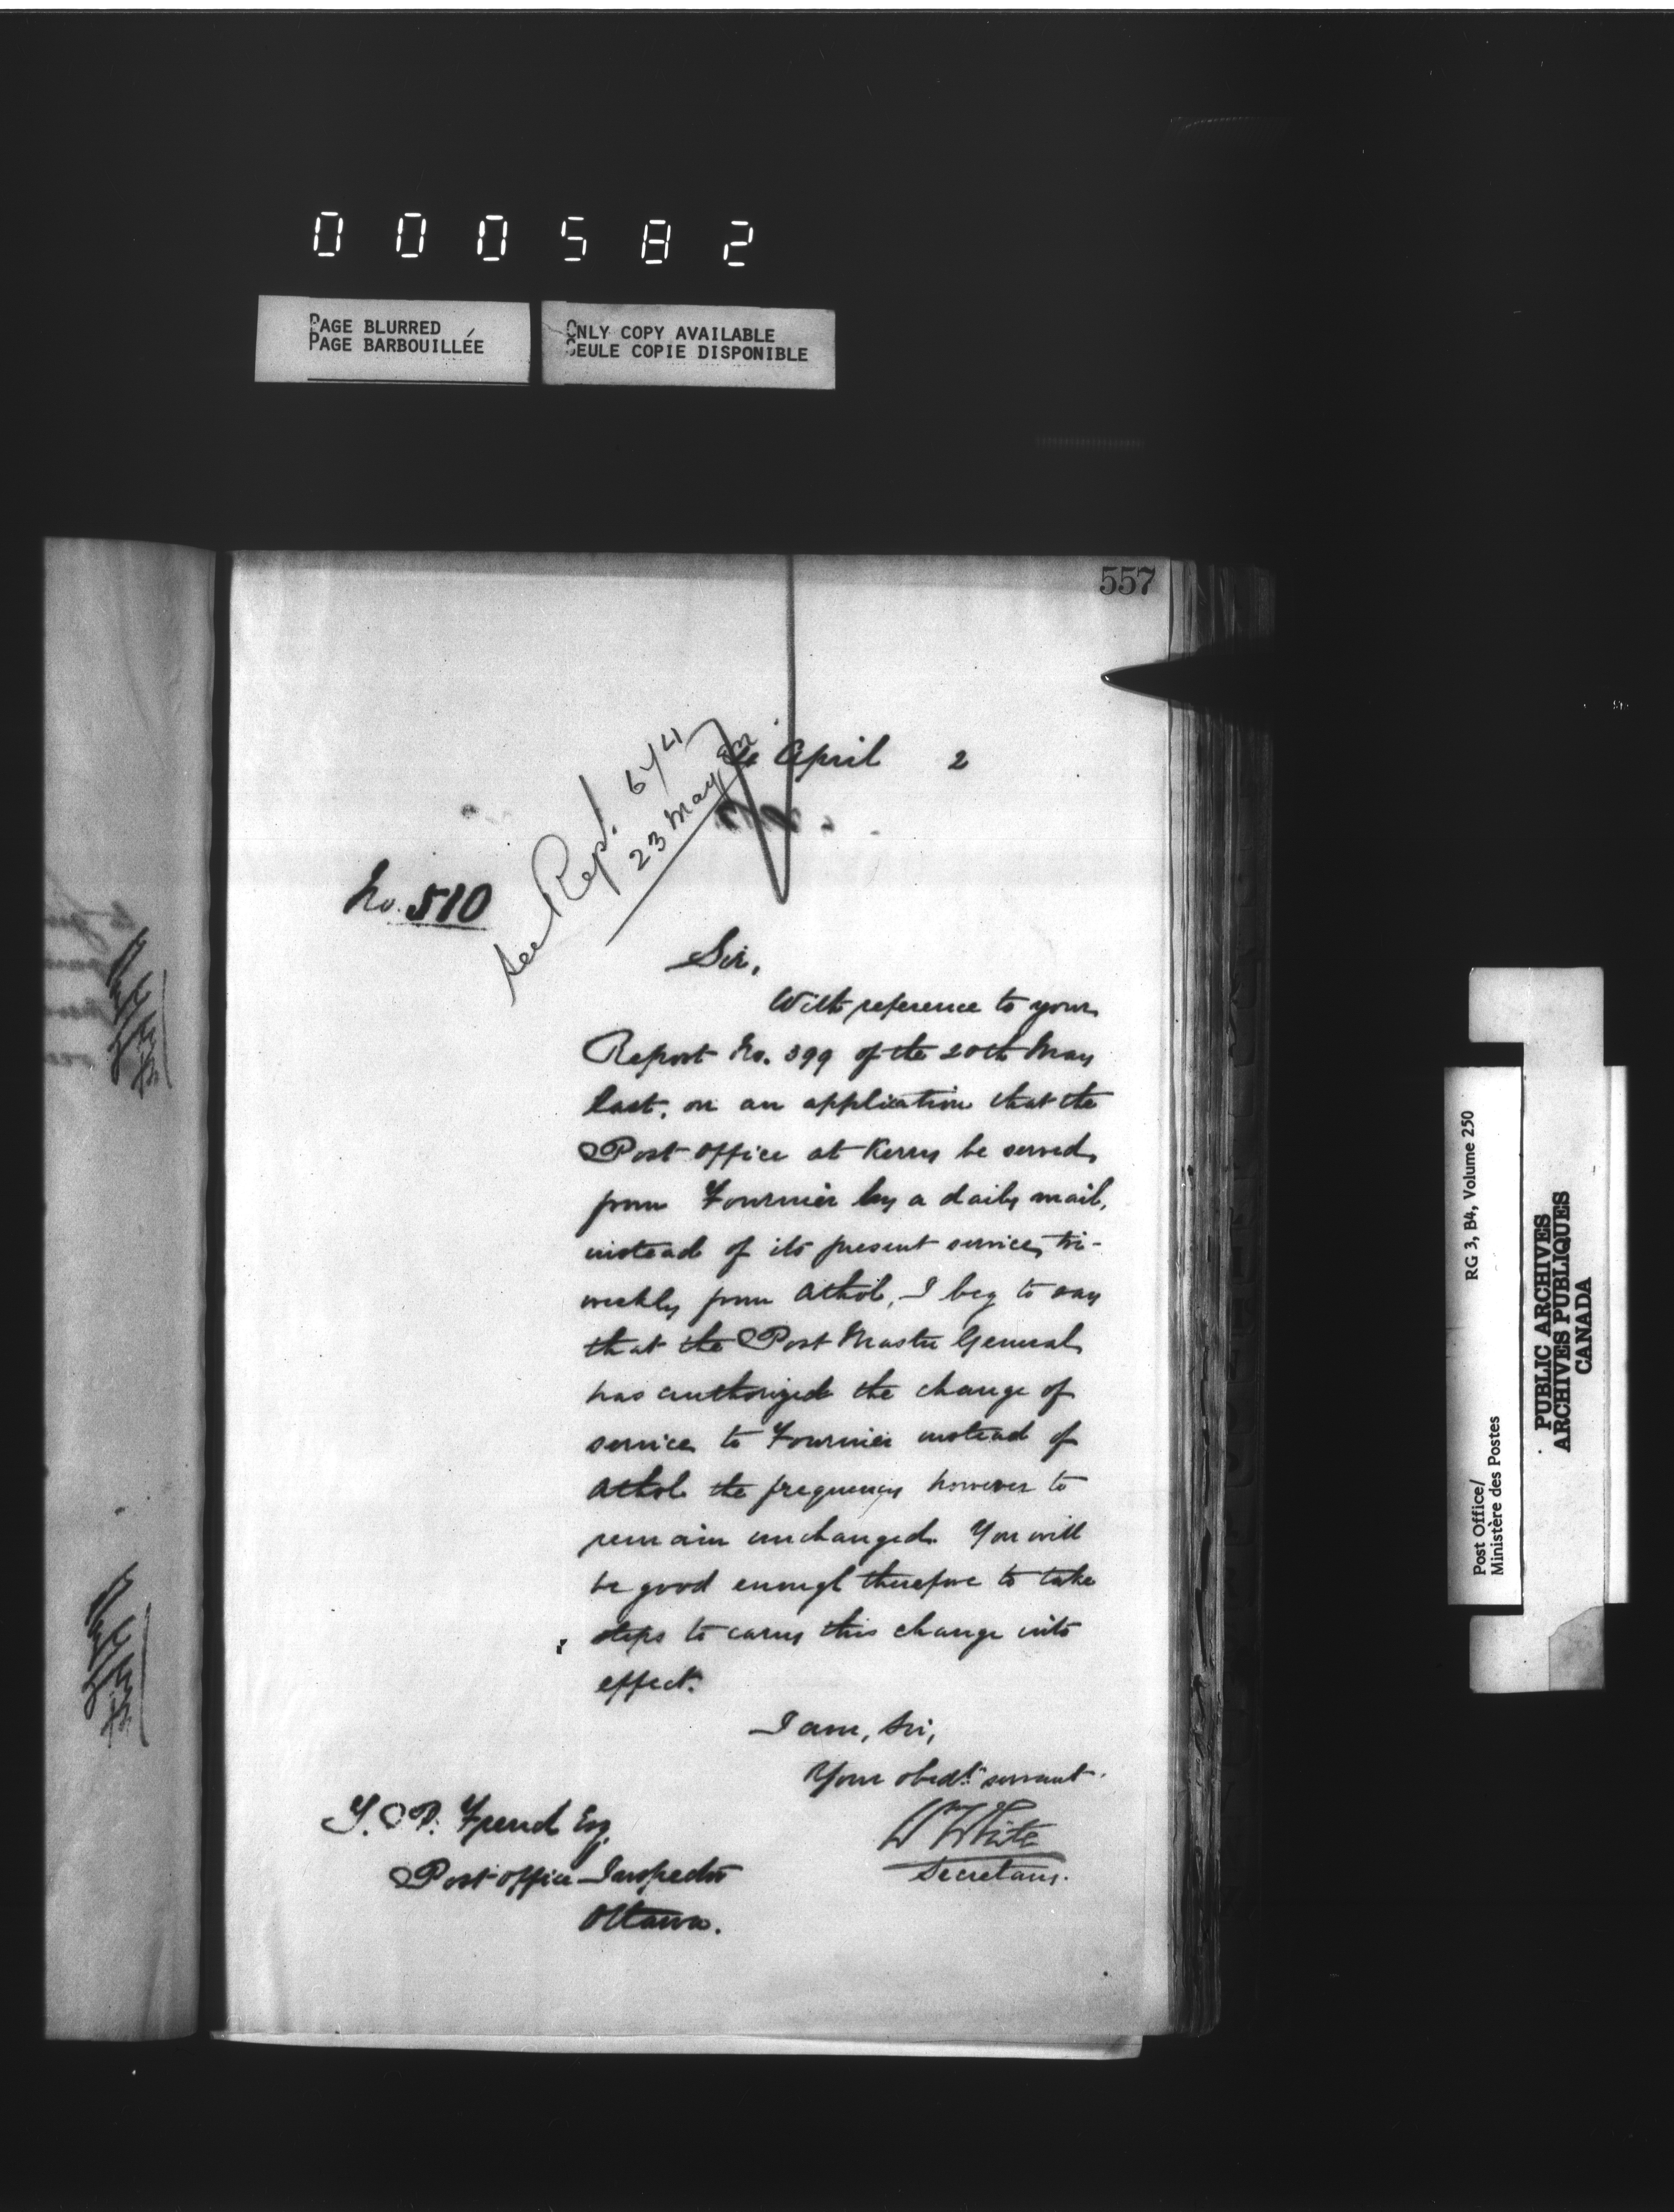 000582
PAGE BLURRED
PAGE BARBOUILLÉE
ONLY COPY AVAILABLE
SEULE COPIE DISPONIBLE
557
April 2
See Rept. 674
23 May
No. 510
Sir,
With reference to your
Report No. 399 of the 20th May
last, on an application that the
Post Office at Kerry be served
from Fournier by a daily mail,
instead of its present service, tri-
weekly from Athol, I beg to say
that the Post Master General
has authorized the change of
service to Fournier instead of
Athol the frequency however to
remain unchanged. You will
be good enough therefore to take
steps to carry this change into
effect.
I am, Sir,
Your obedt. servant.
W White
Secretary.
T. P. French Esq
Post Office Inspector
Ottawa.
Post Office/
Ministère des Postes
RG 3, B4, Volume 250
PUBLIC ARCHIVES
ARCHIVES PUBLIQUES
CANADA